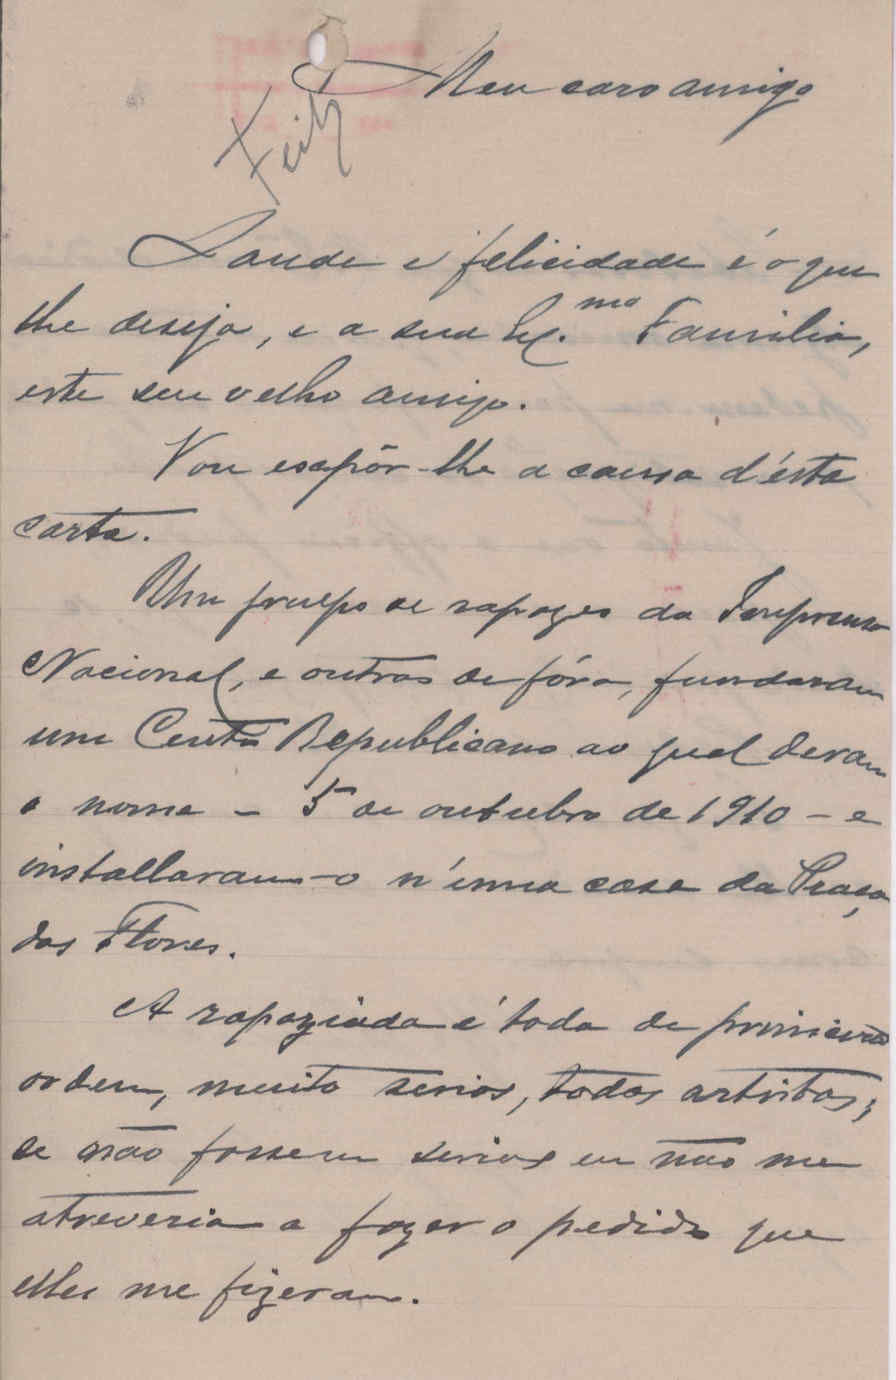 Meu caro amigo
Feito
Saude e felicidade é o que
lhe deseja, e a sua Ex.ma Familia,
este seu velho amigo.
Vou expôr-lhe a causa d'ésta
carta.
Um gruepo de rapazes da Imprensa
Nacional, e outros de fóra, fundaram
um Centro Republicano ao qual deram
o nome – 5 de outubro de 1910 – e
installaram-o n'uma casa da Praça
das Flores.
A rapaziada é toda de primeira
ordem, muito serios, todos artistas;
se não fossem serios eu não me
atreveria a fazer o pedido que
elles me fizeram.